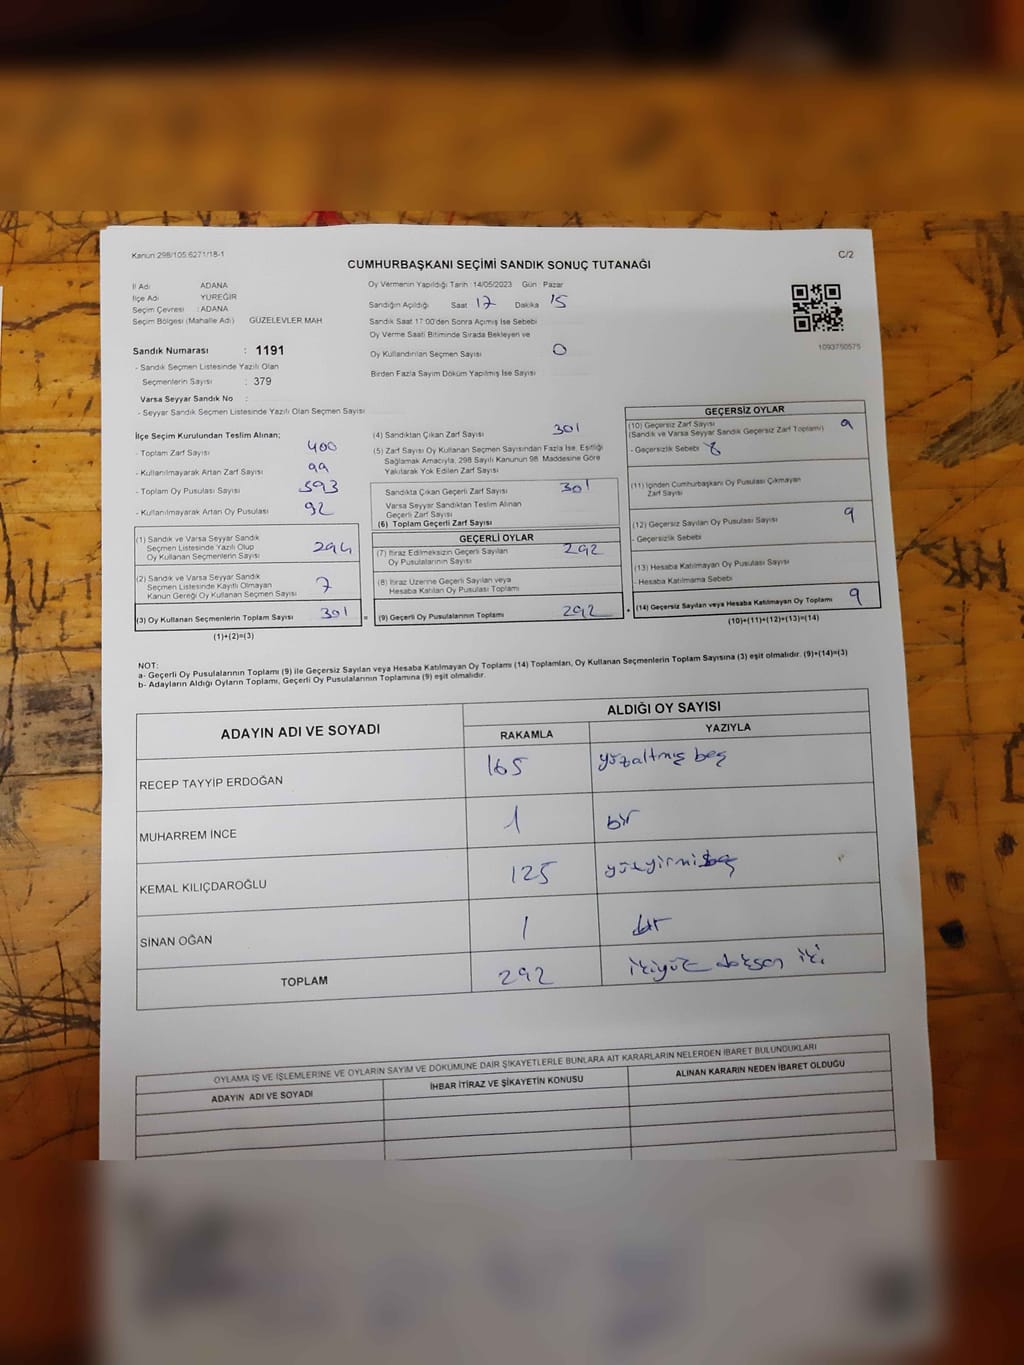 Kanun:298/105:6271/18-1
C/2
CUMHURBAŞKANI SEÇİMİ SANDIK SONUÇ TUTANAĞI
İl Adı ADANA
İlçe Adı YÜREĞİR
Seçim Çevresi : ADANA
Seçim Bölgesi (Mahalle Adı) GÜZELEVLER MAH
Sandık Numarası : 1191
- Sandık Seçmen Listesinde Yazılı Olan
Seçmenlerin Sayısı : 379
Varsa Seyyar Sandık No :
- Seyyar Sandık Seçmen Listesinde Yazılı Olan Seçmen Sayısı
Oy Vermenin Yapıldığı Tarih 14/05/2023 Gün Pazar
Sandığın Açıldığı Saat 17 Dakika 15
Sandık Saat 17:00'den Sonra Açımış İse Sebebi
Oy Verme Saati Bitiminde Sırada Bekleyen ve
Oy Kullandırılan Seçmen Sayısı 0
Birden Fazla Sayım Döküm Yapılmış İse Sayısı
1093750575
İlçe Seçim Kurulundan Teslim Alınan;
- Toplam Zarf Sayısı 400
- Kullanılmayarak Artan Zarf Sayısı 99
- Toplam Oy Pusulası Sayısı 393
- Kullanılmayarak Artan Oy Pusulası 92
(1) Sandık ve Varsa Seyyar Sandık
Seçmen Listesinde Yazılı Olup
Oy Kullanan Seçmenlerin Sayısı 294
(2) Sandık ve Varsa Seyyar Sandık
Seçmen Listesinde Kayıtlı Olmayan
Kanun Gereği Oy Kullanan Seçmen Sayısı 7
(3) Oy Kullanan Seçmenlerin Toplam Sayısı 301
(1)+(2)=(3)
(4) Sandıktan Çıkan Zarf Sayısı 301
(5) Zarf Sayısı Oy Kullanan Seçmen Sayısından Fazla İse, Eşitliği
Sağlamak Amacıyla, 298 Sayılı Kanunun 98. Maddesine Göre
Yakılarak Yok Edilen Zarf Sayısı
Sandıkta Çıkan Geçerli Zarf Sayısı 301
Varsa Seyyar Sandıktan Teslim Alınan
Geçerli Zarf Sayısı
(6) Toplam Geçerli Zarf Sayısı
GEÇERLİ OYLAR
(7) İtiraz Edilmeksizin Geçerli Sayılan
Oy Pusulalarının Sayısı 292
(8) İtiraz Üzerine Geçerli Sayılan veya
Hesaba Katılan Oy Pusulası Toplamı
= (9) Geçerli Oy Pusulalarının Toplamı 292
GEÇERSİZ OYLAR
(10) Geçersiz Zarf Sayısı
(Sandık ve Varsa Seyyar Sandık Geçersiz Zarf Toplamı) 9
- Geçersizlik Sebebi
(11) İçinden Cumhurbaşkanı Oy Pusulası Çıkmayan
Zarf Sayısı
(12) Geçersiz Sayılan Oy Pusulası Sayısı 9
- Geçersizlik Sebebi
(13) Hesaba Katılmayan Oy Pusulası Sayısı
- Hesaba Katılmama Sebebi
+ (14) Geçersiz Sayılan veya Hesaba Katılmayan Oy Toplamı 9
(10)+(11)+(12)+(13)=(14)
NOT:
a- Geçerli Oy Pusulalarının Toplamı (9) ile Geçersiz Sayılan veya Hesaba Katılmayan Oy Toplamı (14) Toplamları, Oy Kullanan Seçmenlerin Toplam Sayısına (3) eşit olmalıdır. (9)+(14)=(3)
b- Adayların Aldığı Oyların Toplamı, Geçerli Oy Pusulalarının Toplamına (9) eşit olmalıdır.
ADAYIN ADI VE SOYADI
ALDIĞI OY SAYISI
RAKAMLA YAZIYLA
RECEP TAYYİP ERDOĞAN 165 yüzaltmış beş
MUHARREM İNCE 1 bir
KEMAL KILIÇDAROĞLU 125 yüzyirmibeş
SİNAN OĞAN 1 bir
TOPLAM 292 ikiyüz doksan iki
OYLAMA İŞ VE İŞLEMLERİNE VE OYLARIN SAYIM VE DÖKÜMÜNE DAİR ŞİKAYETLERLE BUNLARA AİT KARARLARIN NELERDEN İBARET BULUNDUKLARI
ADAYIN ADI VE SOYADI İHBAR İTİRAZ VE ŞİKAYETİN KONUSU ALINAN KARARIN NEDEN İBARET OLDUĞU